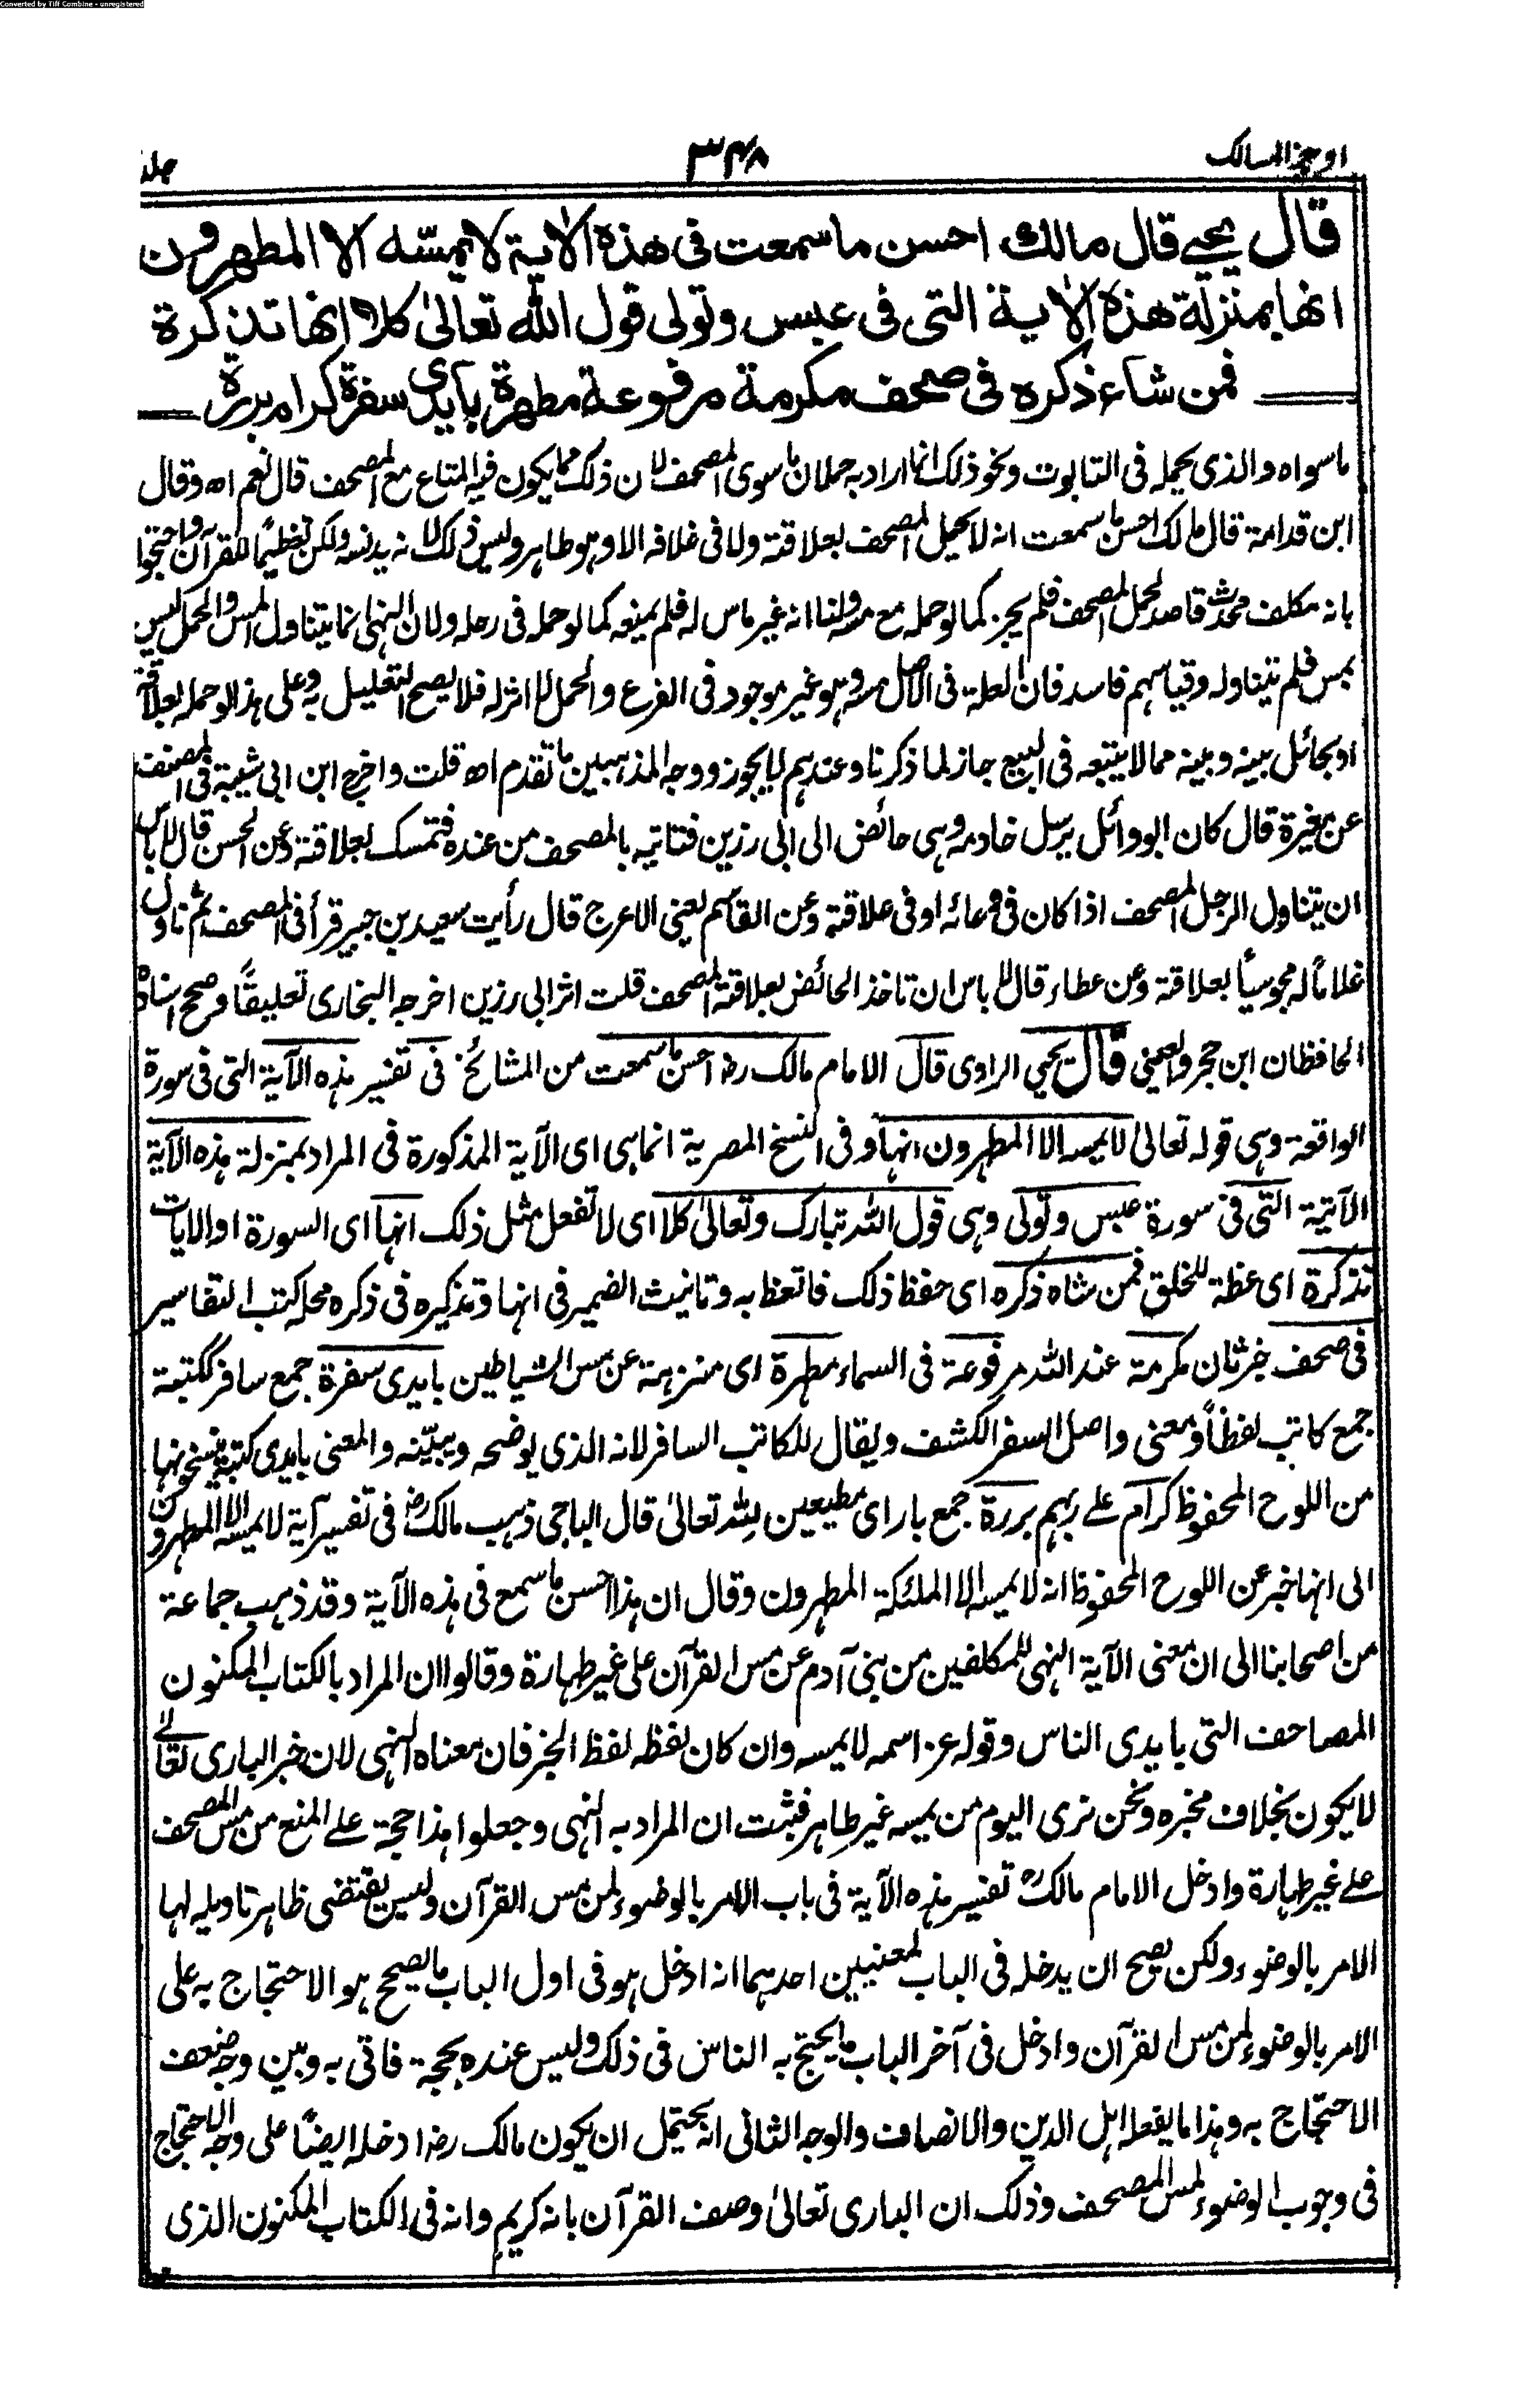 Converted by Tiff Combine - unregistered
اوجز المسالك ٣٤٨ جلد
قال يحيى قال مالك احسن ما سمعت فى هذه الاٰية لا يمسّه الا المطهرون
انها بمنزلة هذه الاٰية التى فى عبس وتولى قول الله تعالىٰ كلا انها تذكرة
فمن شاء ذكره فى صحف مكرمة مرفوعة مطهرة بايدى سفرة كرام بررة
ما سواه والذى يحمله فى التابوت ونحو ذلك انما اراد به حملان ما سوى المصحف لان ذلك مما يكون فيه المتاع مع المصحف قال نعم اھ وقال
ابن قدامة قال مالك احسن ما سمعت انه لا يحمل المصحف بعلاقته ولا فى غلافه الا وهو طاهر وليس ذلك لانه يدنسه ولكن تعظيمًا للقرآن واحتجوا
بانه مكلف محدث قاصد لحمل المصحف فلم يجز كما لو حمله مع مسه ولنا انه غير ماس له فلم يمنع كما لو حمله فى رحله ولان النهى انما يتناول المس والحمل ليس
بمس فلم يتناوله وقياسهم فاسد فان العلة فى الاصل مسه وهو غير موجود فى الفرع والحمل لا اثر له فلا يصح التعليل به وعلى هذا لو حمله بعلاقة
او بحائل بينه وبينه مما لا يتبعه فى البيع جاز لما ذكرنا وعندهم لا يجوز ووجه المذهبين ما تقدم اھ قلت واخرج ابن ابى شيبة فى المصنف
عن مغيرة قال كان ابو وائل يرسل خادمه وهى حائض الى ابى رزين فتاتيه بالمصحف من عنده فتمسك بعلاقته وعن الحسن قال لا باس
ان يتناول الرجل المصحف اذا كان فى وعائه او فى علاقته وعن القاسم يعنى الاعرج قال رأيت سعيد بن جبير قرأ فى المصحف ثم ناول
غلامًا له مجوسيًا بعلاقته وعن عطاء قال لا باس ان تاخذ الحائض بعلاقة المصحف قلت اثر ابى رزين اخرجه البخارى تعليقًا وصحح اسناده
الحافظان ابن حجر والعينى قال يحيى الراوى قال الامام مالك رضه احسن ما سمعت من المشائخ فى تفسير هذه الآية التى فى سورة
الواقعة وهى قوله تعالى لا يمسه الا المطهرون انها وفى النسخ المصرية انما هى اى الآية المذكورة فى المراد بمنزلة هذه الآية
الآتية التى فى سورة عبس وتولى وهى قول الله تبارك وتعالىٰ كلا اى لا تفعل مثل ذلك انها اى السورة او الآيات
تذكرة اى عظة للخلق فمن شاء ذكره اى حفظ ذلك فاتعظ به وتانيث الضمير فى انها وتذكيره فى ذكره محله كتب التفاسير
فى صحف خبر ثان مكرمة عند الله مرفوعة فى السماء مطهرة اى منزهة عن مس الشياطين بايدى سفرة جمع سافر ككتبة
جمع كاتب لفظًا ومعنى واصل السفر الكشف ويقال للكاتب السافر لانه الذى يوضحه ويبيّنه والمعنى بايدى كتبة ينسخونها
من اللوح المحفوظ كرام على ربهم بررة جمع بار اى مطيعين لله تعالىٰ قال الباجى ذهب مالك رض فى تفسير آية لا يمسه الا المطهرون
الى انها خبر عن اللوح المحفوظ انه لا يمسه الا الملئكة المطهرون وقال ان هذا احسن ما سمع فى هذه الآية وقد ذهب جماعة
من اصحابنا الى ان معنى الآية النهى للمكلفين من بنى آدم عن مس القرآن على غير طهارة وقالوا ان المراد بالكتاب المكنون
المصاحف التى بايدى الناس وقوله عز اسمه لا يمسه وان كان لفظه لفظ الخبر فان معناه النهى لان خبر البارى تعالىٰ
لا يكون بخلاف مخبره ونحن نرى اليوم من يمسه غير طاهر فثبت ان المراد به النهى وجعلوا هذا حجة على المنع من مس المصحف
على غير طهارة وادخل الامام مالك رح تفسير هذه الآية فى باب الامر بالوضوء لمن مس القرآن وليس يقتضى ظاهر تاويله لها
الامر بالوضوء ولكن يصح ان يدخله فى الباب لمعنيين احدهما انه ادخل هو فى اول الباب ما يصح هو الاحتجاج به على
الامر بالوضوء لمن مس القرآن وادخل فى آخر الباب ما يحتج به الناس فى ذلك وليس عنده بحجة فاتى به وبين وجه ضعف
الاحتجاج به وهذا ما يفعله اهل الدين والانصاف والوجه الثانى انه يحتمل ان يكون مالك رضه ادخله ايضًا على وجه الاحتجاج
فى وجوب الوضوء لمس المصحف وذلك ان البارى تعالىٰ وصف القرآن بانه كريم وانه فى الكتاب المكنون الذى